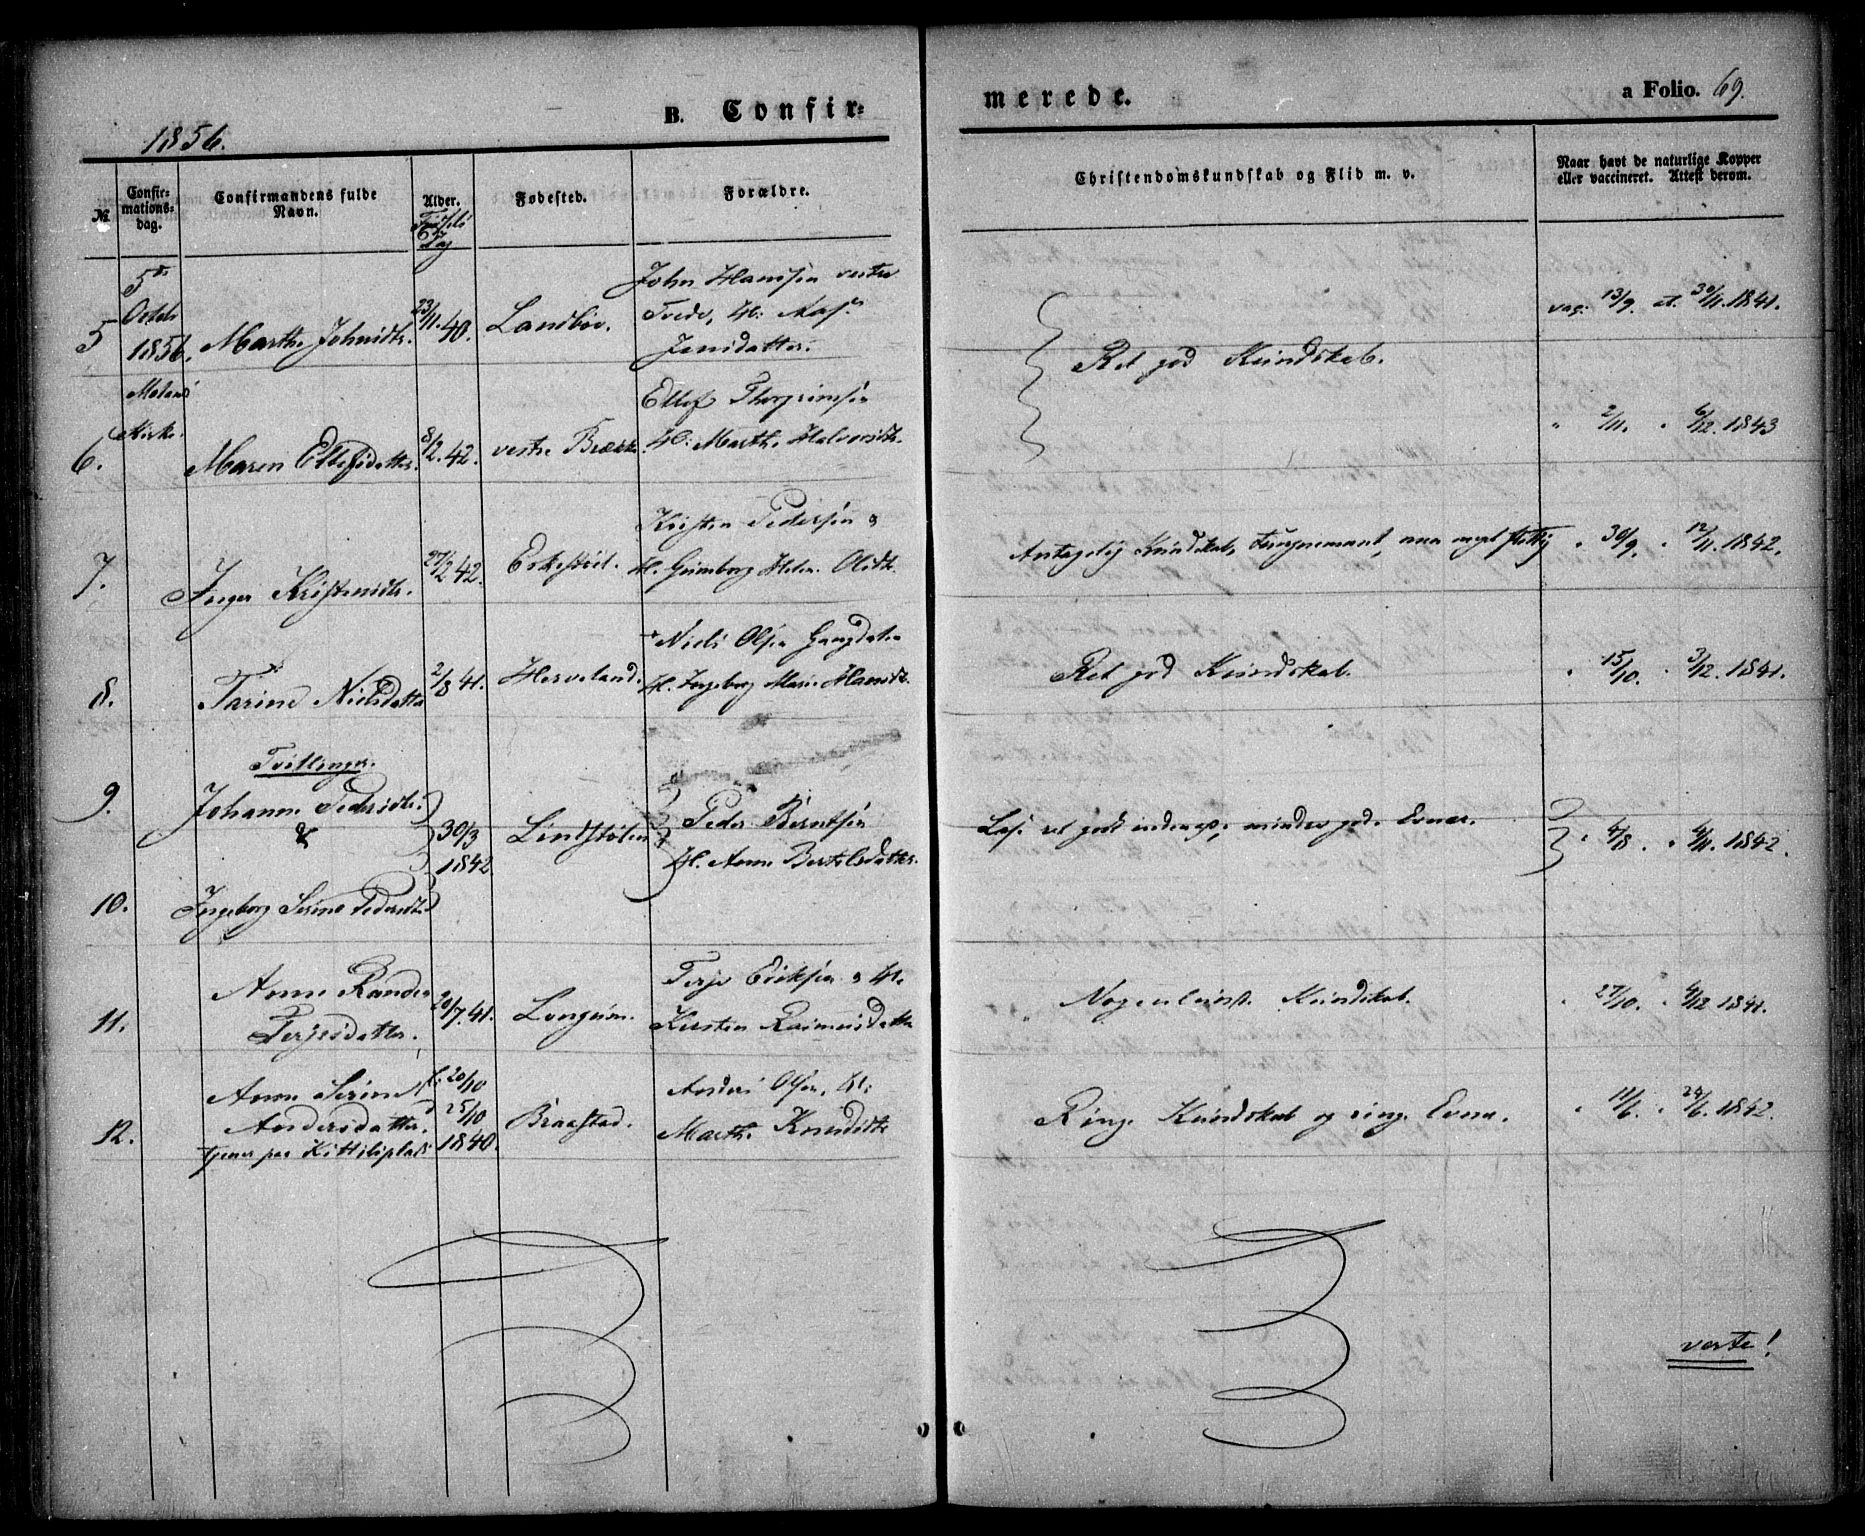 1856.
B. Confir-
merede.
a Folio. 69.
№
Confir-
mations-
dag.
Confirmandens fulde
Navn.
Alder.
Fødsels
Dag
Fødested.
Forældre.
Christendomskundskab og Flid m. v.
Naar havt de naturlige Kopper
eller vaccineret. Attest derom.
5
5te
Octob
1856.
Molands
Kirke.
Marthe Johnsdtr.
23/11. 40.
Landbøe.
John Hansen vestre
Trede, H:
Jensdatter.
Ret god Kundskab.
vac: 13/9. at. 30/11. 1841.
6.
Maren Ellefsdatter.
8/2. 42.
vestre Brække
Ellef Thorgrimsen
H: Marthe Halvorsdtr.
" 2/11. " 6/12. 1843
7.
Inger Kristensdtr.
27/2 42.
Eskestøil.
Kristen Pedersen &
H. Gunborg Helene Olsdtr.
Antagelig Kundskab, tungnemmet, men meget flittig
" 30/9. " 12/11. 1842.
8.
Tarine Nielsdatter
2/8 41.
Herveland.
Niels Olsen
H. Ingeborg Marie Hansdtr.
Ret god Kundskab.
" 15/10. " 3/12. 1841.
Tvillinger.
9.
Johanne Pedersdtr.
&
30/3
1842
Lindstølen
Peder Berntsen
H. Anne Bertelsdatter.
Læse ret godt indenad, mindre gode Evner.
" 4/8. " 4/11. 1842.
10.
Ingeborg Serine Pedersdtr.
11.
Anne Randea
Terjesdatter.
20/7. 41.
Longum.
Terje Eriksen & H.
Kirsten Raimersdatter
Nogenlunde Kundskab.
" 27/10. " 4/12 1841.
12.
Anne Serine
Andersdatter.
tjener paa Kittilsplads
f: 20/10
d 25/10
1840.
Braastad.
Anders Olsen, H:
Marthe Knudsdtr
Ringe Kundskab og ringe Evner.
" 11/6. " 24/6. 1842.
verte!